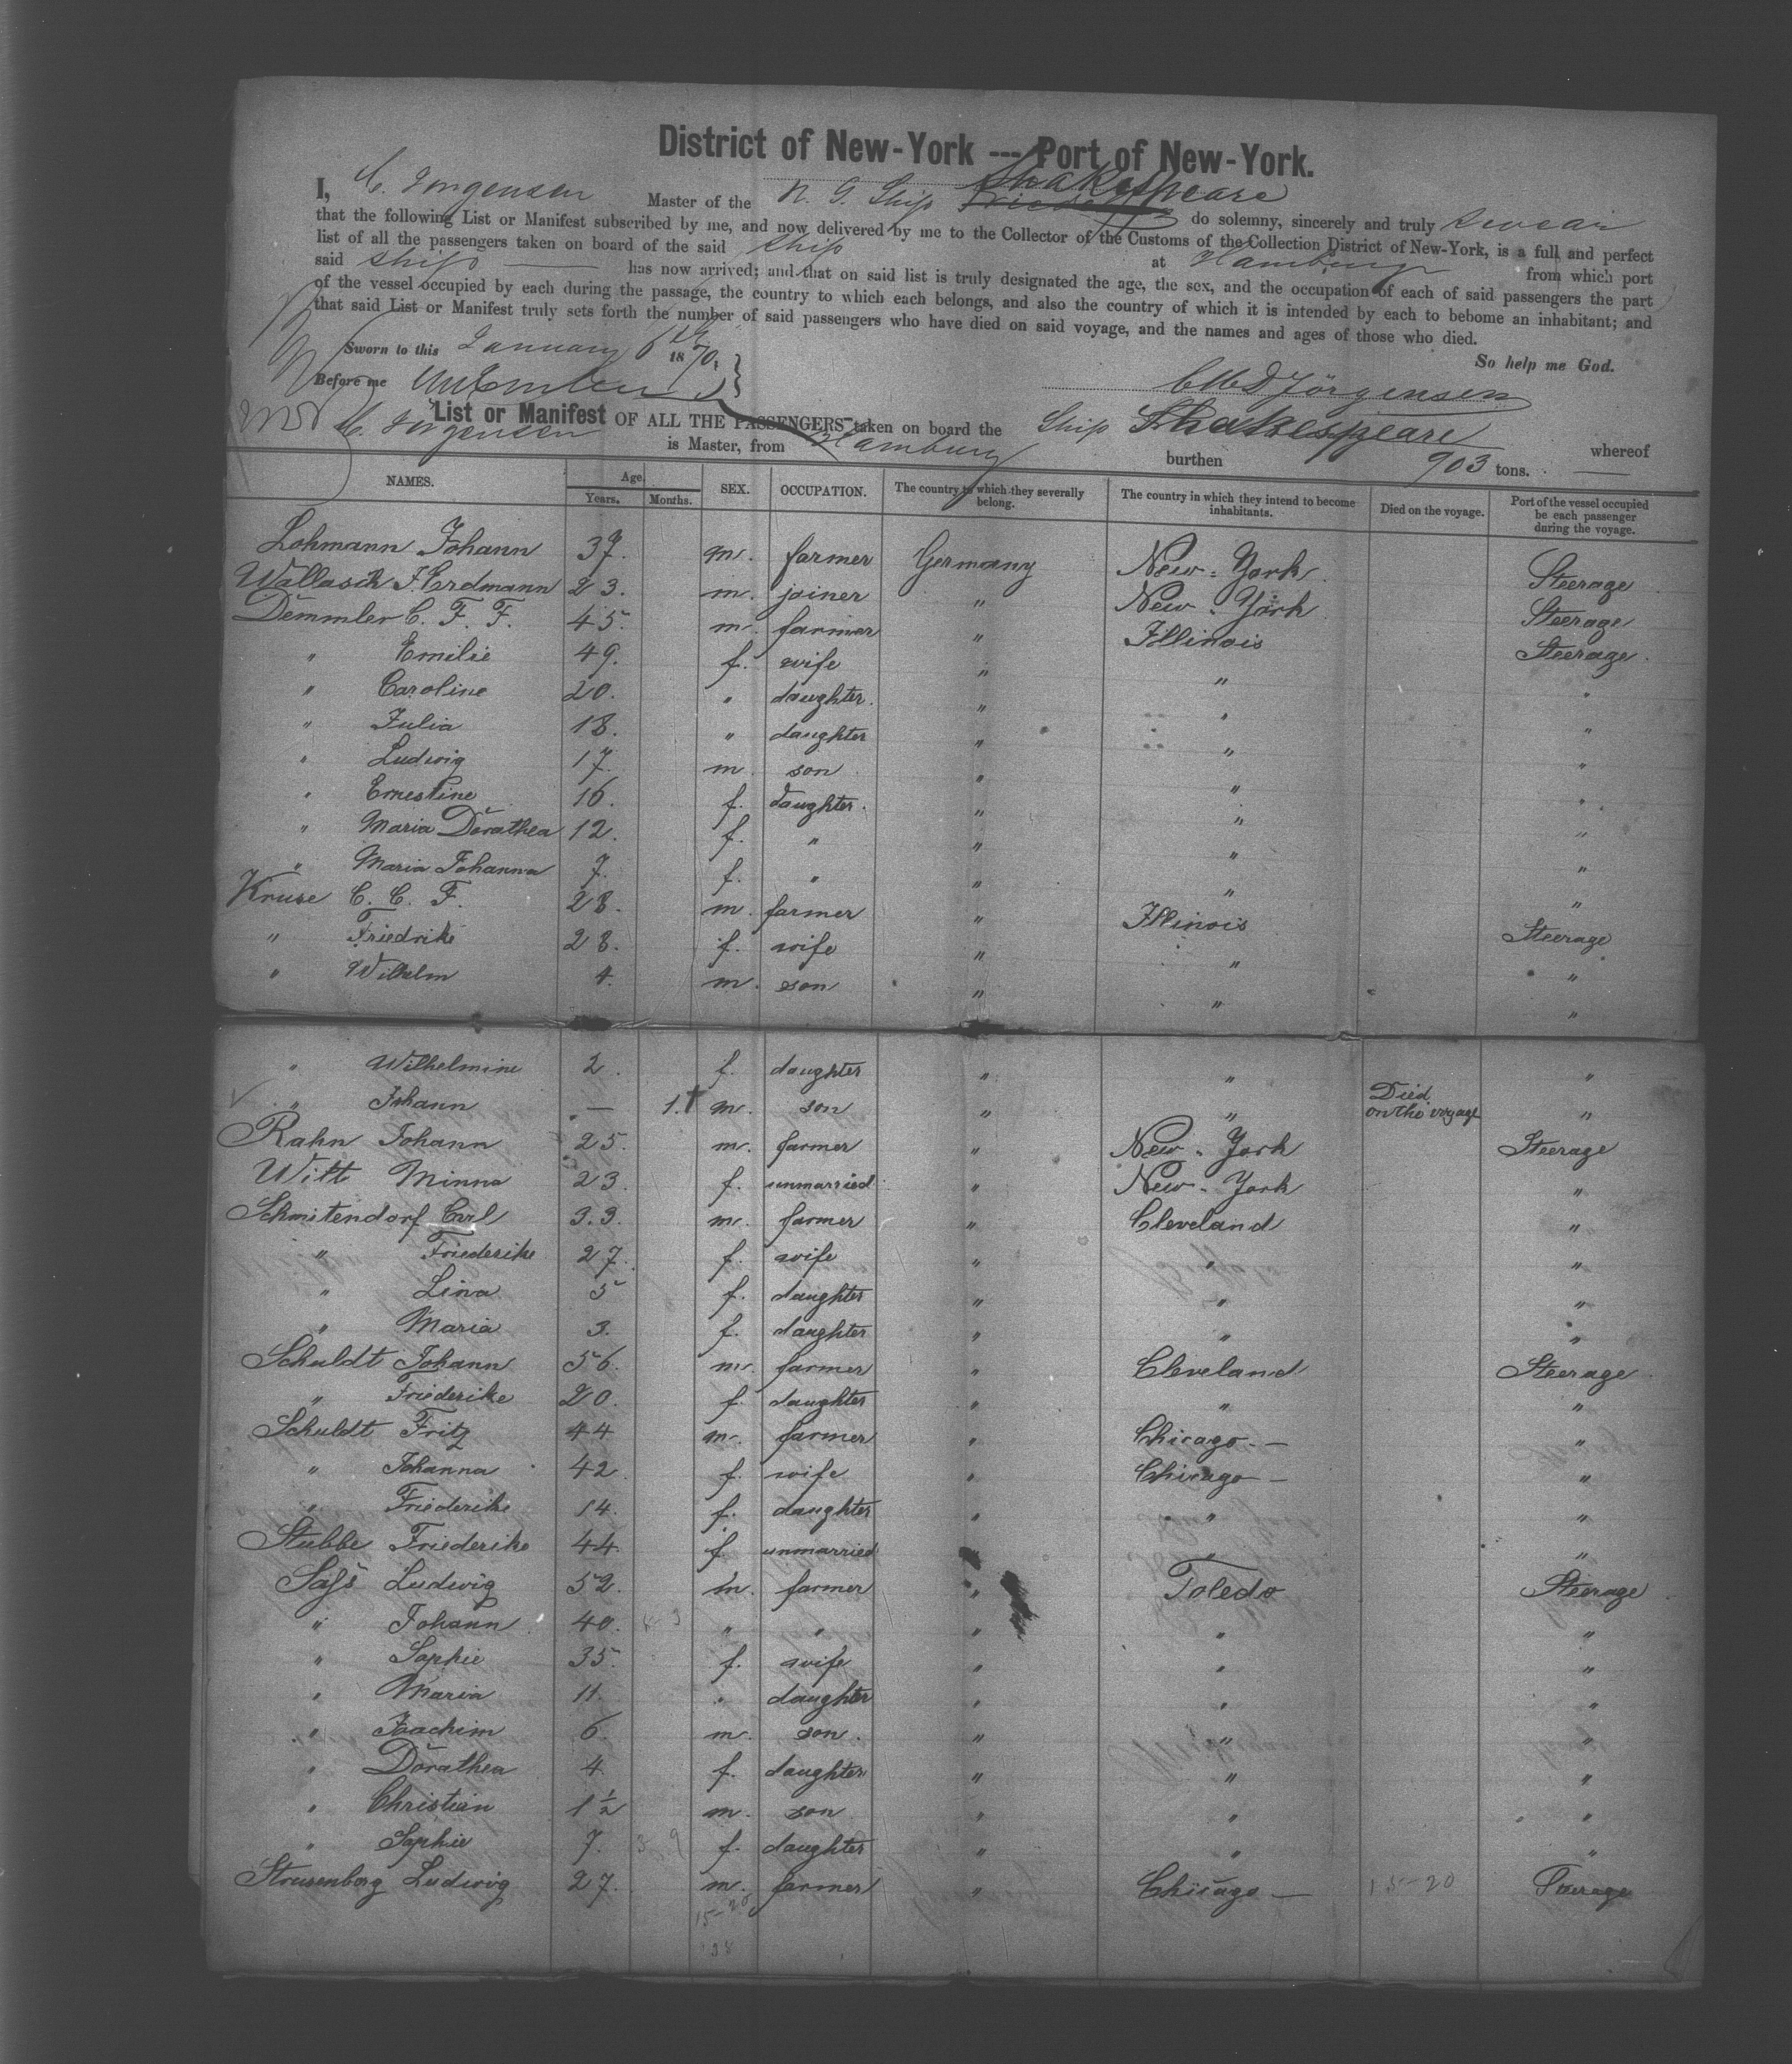 District of New-York --- Port of New-York.
I, C. Jorgensen Master of the N. G. Ship Shakespeare do solemny, sincerely and truly swear
that the following List or Manifest subscribed by me, and now delivered by me to the Collector of the Customs of the Collection District of New-York, is a full and perfect
list of all the passengers taken on board of the said ship at Hamburg from which port
said ship has now arrived; and that on said list is truly designated the age, the sex, and the occupation of each of said passengers the part
of the vessel occupied by each during the passage, the country to which each belongs, and also the country of which it is intended by each to bebome an inhabitant; and
that said List or Manifest truly sets forth the number of said passengers who have died on said voyage, and the names and ages of those who died.
So help me God.
Sworn to this January 6th 1870.
Before me
Jörgensen
List or Manifest OF ALL THE PASSENGERS taken on board the Ship Shakespeare whereof
C. Jörgensen is Master, from Hamburg burthen 903 tons.
NAMES. Age. Years. Months. SEX. OCCUPATION. The country to which they severally belong. The country in which they intend to become inhabitants. Died on the voyage. Port of the vessel occupied be each passenger during the voyage.
Lohmann Johann 37. m. farmer Germany New-York Steerage
Wallasch F. Erdmann 23. m. joiner " New-York Steerage
Demmler C. F. F. 45. m. farmer " Illinois Steerage
" Emilie 49. f. wife " " "
" Caroline 20. " daughter. " " "
" Julia 18. " daughter " " "
" Ludwig 17. m. son " " "
" Ernestine 16. f. daughter. " " "
" Maria Dorathea 12. f. " " " "
" Maria Johanna 7. f. " " " "
Kruse C. C. F. 28. m. farmer " Illinois Steerage
" Friedrike 28. f. wife " " "
" Wilhelm 4. m. son " " "
" Wilhelmine 2. f. daughter " " "
" Johann — 1.† m. son " " Died on the voyage "
Rahn Johann 25. m. farmer " New-York Steerage
Witt Minna 23. f. unmarried " New-York "
Schmitendorf Carl 33. m. farmer " Cleveland "
" Friederike 27. f. wife " " "
" Lina 5 f. daughter " " "
" Maria 3. f. daughter " " "
Schuldt Johann 56. m. farmer " Cleveland Steerage
" Friederike 20. f. daughter " " "
Schuldt Fritz 44 m. farmer " Chicago — "
" Johanna 42 f. wife " Chicago — "
" Friederike 14. f. daughter " " "
Stubbe Friederike 44. f. unmarried " " "
Safs Ludwig 52. m. farmer " Toledo Steerage
" Johann 40. " " " " "
" Sophie 35. f. wife " " "
" Maria 11. " daughter " " "
" Joachim 6. m. son. " " "
" Dorathea 4. f. daughter " " "
" Christian 1½ m. son " " "
" Sophie 7. f. daughter " " "
Strusenberg Ludwig 27. m. farmer " Chicago — 15-20 Steerage
15-20